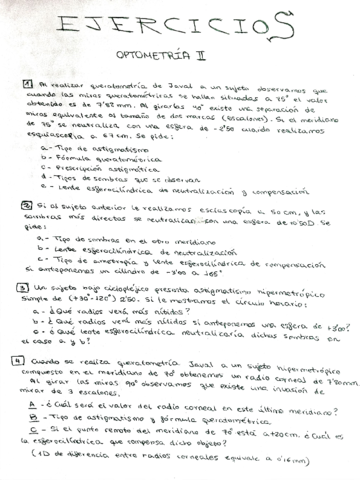 EJERCICIOS
OPTOMETRÍA II
1 Al realizar queratometría de Javal a un sujeto observamos que
cuando las miras queratométricas se hallan situadas a 75º el valor
obtenido es de 7'87 mm. Al girarlas 90º existe una separación de
miras equivalente al tamaño de dos marcas (escalones). Si el meridiano
de 75º se neutraliza con una esfera de -2'50 cuando realizamos
esquiascopia a 67 cm. Se pide:
a.- Tipo de astigmatismo
b.- Fórmula queratométrica
c.- Prescripción astigmática
d.- Tipos de sombras que se observan
e.- Lente esferocilíndrica de neutralización y compensación
2 Si al sujeto anterior le realizamos esciascopía a 50 cm, y las
sombras más directas se neutralizan con una esfera de 0'50D. Se
pide:
a.- Tipo de sombras en el otro meridiano
b.- Lente esferocilíndrica de neutralización
c.- Tipo de ametropía y lente esferocilíndrica de compensación
Si anteponemos un cilindro de a 165º
3 Un sujeto bajo ciclopléjico presenta astigmatismo hipermetrópico
simple de (+30º-120º) 2'50. Si le mostramos el círculo horario:
a.- ¿Qué radios verá más nítidos?
b.- ¿Qué radios verá más nítidos si anteponemos una esfera de +3'00?
c.- ¿Qué lente esferocilíndrica neutralizaría dichas sombras en
el caso a y b?
4 Cuando se realiza queratometría Javal a un sujeto hipermetrópico
compuesto en el meridiano de 70º obtenemos un radio corneal de 7'80mm
Al girar las miras 90º observamos que existe una invasión de
miras de 3 escalones.
A.- ¿Cuál será el valor del radio corneal en este último meridiano?
B.- Tipo de astigmatismo y fórmula queratométrica
C.- Si el punto remoto del meridiano de 70º está a +20cm ¿Cuál es
la esferocilíndrica que compensa dicho objeto?
(1D de diferencia entre radios corneales equivale a 0'16mm)